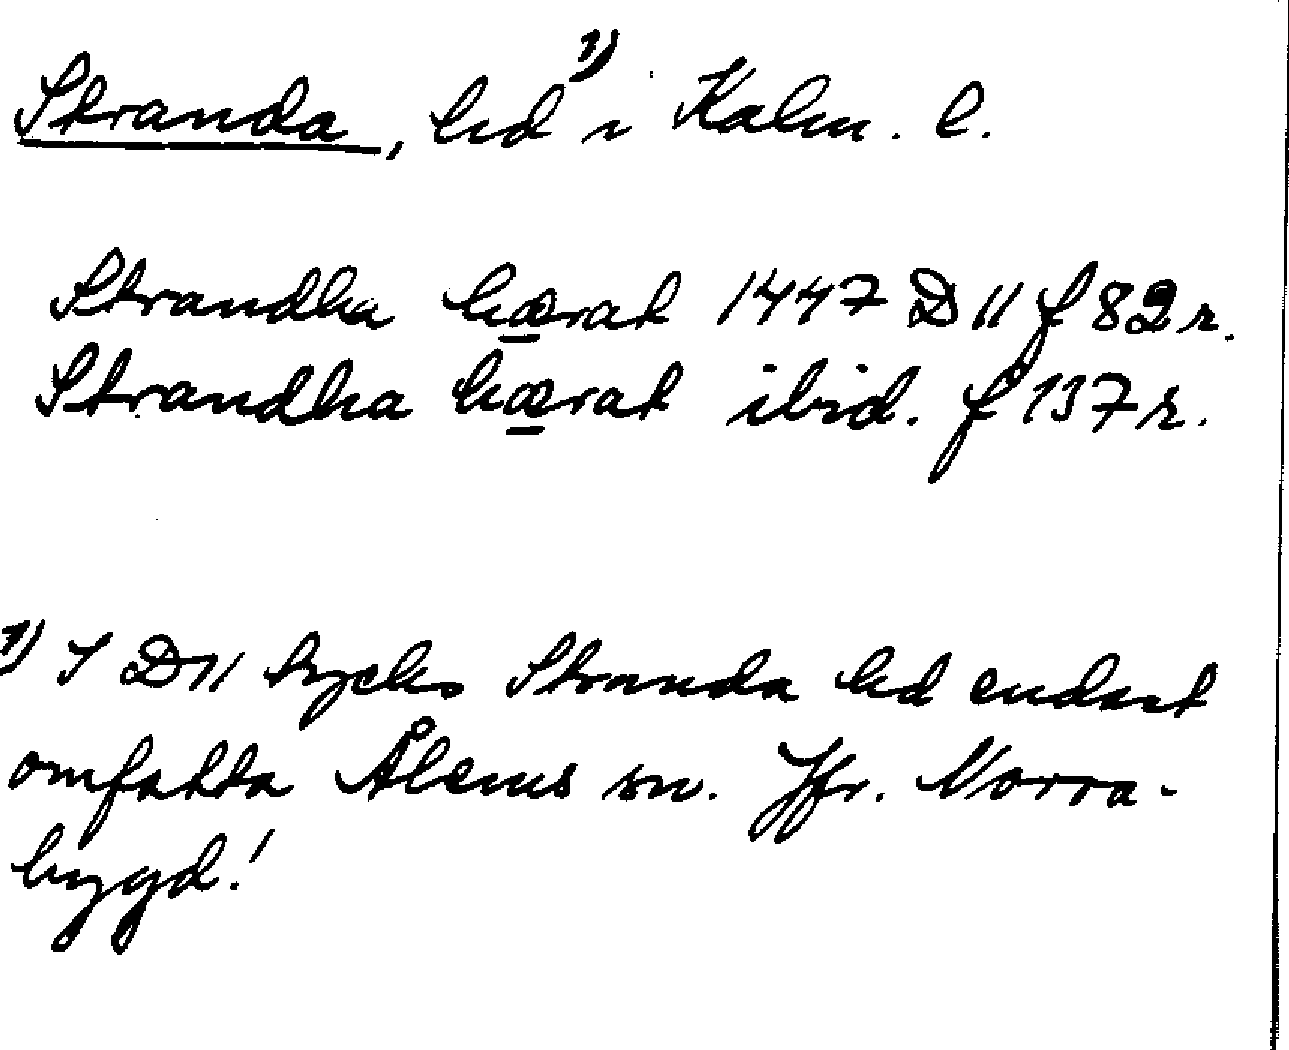 Stranda, hd 1) i Kalm. l.
Strandha hærat 1447 D 11 f 82 r.
Strandha hærat ibid. f 137 r.
1) I D 11 tycks Stranda hd endast
omfatta Ålems sn. Jfr. Norra-
bygd!